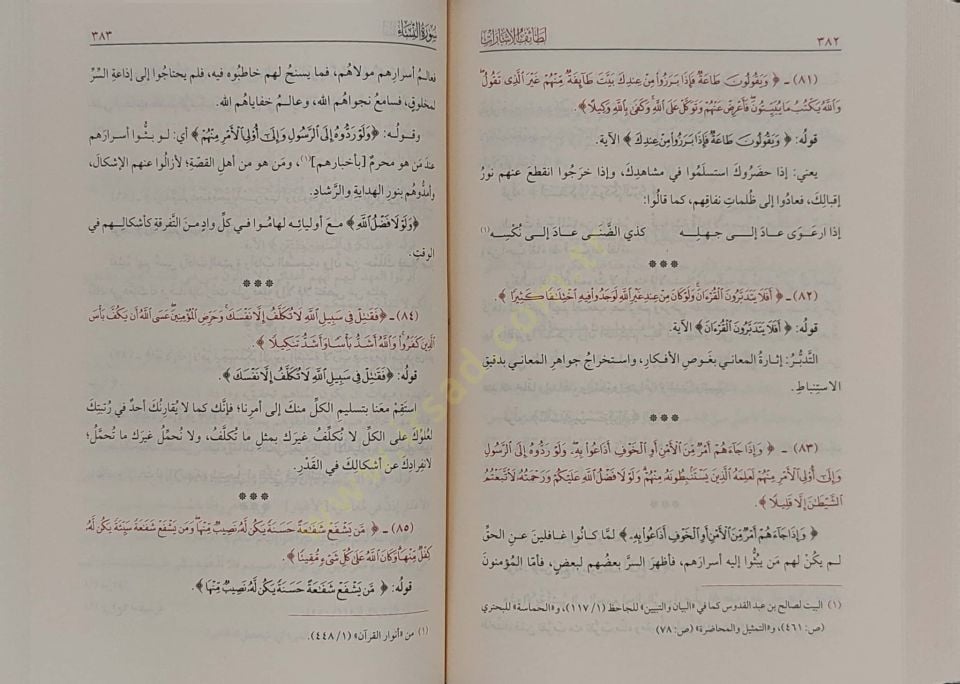 ٣٨٢
لطائف الإشارات
(٨١) ـ ﴿ وَيَقُولُونَ طَاعَةٌ فَإِذَا بَرَزُوا مِنْ عِندِكَ بَيَّتَ طَآئِفَةٌ مِّنْهُمْ غَيْرَ الَّذِى تَقُولُ
وَاللَّهُ يَكْتُبُ مَا يُبَيِّتُونَ فَأَعْرِضْ عَنْهُمْ وَتَوَكَّلْ عَلَى اللَّهِ وَكَفَى بِاللَّهِ وَكِيلًا ﴾.
قوله: ﴿ وَيَقُولُونَ طَاعَةٌ فَإِذَا بَرَزُوا مِنْ عِندِكَ ﴾ الآية.
يعني: إذا حضَرُوكَ استسلَمُوا في مشاهدِكَ، وإذا خرَجُوا انقطعَ عنهم نورُ
إقبالِكَ، فعادُوا إلى ظُلماتِ نفاقِهم، كما قالُوا:
إذا ارعَوَى عـادَ إلـــى جـهـلِـهِ كذي الضَّنَى عـادَ إلى نُكْسِـه(١)
***
(٨٢) ـ ﴿ أَفَلَا يَتَدَبَّرُونَ الْقُرْءَانَ وَلَوْ كَانَ مِنْ عِندِ غَيْرِ اللَّهِ لَوَجَدُوا فِيهِ اخْتِلَافًا كَثِيرًا ﴾.
قوله: ﴿ أَفَلَا يَتَدَبَّرُونَ الْقُرْءَانَ ﴾ الآية.
التَّدبُّرُ: إثارةُ المعاني بغَوصِ الأفكارِ، واستخراجُ جواهرِ المعاني بدقيقِ
الاستِنباطِ.
***
(٨٣) ـ ﴿ وَإِذَا جَآءَهُمْ أَمْرٌ مِّنَ الْأَمْنِ أَوِ الْخَوْفِ أَذَاعُوا بِهِ وَلَوْ رَدُّوهُ إِلَى الرَّسُولِ
وَإِلَى أُوْلِى الْأَمْرِ مِنْهُمْ لَعَلِمَهُ الَّذِينَ يَسْتَنْبِطُونَهُ مِنْهُمْ وَلَوْلَا فَضْلُ اللَّهِ عَلَيْكُمْ وَرَحْمَتُهُ لَاتَّبَعْتُمُ
الشَّيْطَنَ إِلَّا قَلِيلًا ﴾.
﴿ وَإِذَا جَآءَهُمْ أَمْرٌ مِّنَ الْأَمْنِ أَوِ الْخَوْفِ أَذَاعُوا بِهِ ﴾ لمَّا كـانُوا غـافـلينَ عـنِ الحقِّ
لـم يكُنْ لهم مَن يَبُثُّوا إليه أسرارَهم، فأظهرَ السرَّ بعضُهم لبعضٍ، فأمَّا المؤمنونَ
(١) البيت لصالح بن عبد القدوس كما في «البيان والتبيين» للجاحظ (١/ ١١٧)، و«الحماسة» للبحتري
(ص: ٤٦١)، و«التمثيل والمحاضرة» (ص: ٧٨)
سورة النساء
٣٨٣
فعالمُ أسرارِهم مولاهُم، فما يسنحُ لهم خاطبُوه فيه، فلم يحتاجُوا إلى إذاعةِ السِّرِّ
لمخلوقٍ، فسامعُ نجواهُم الله، وعالـمُ خفاياهُم الله.
وقـولُـه: ﴿وَلَوْ رَدُّوهُ إِلَى الرَّسُولِ وَإِلَى أُوْلِى الْأَمْرِ مِنْهُمْ ﴾ أي: لو بثُّوا أسرارَهم
عندَ مَن هو محرمٌ [بأخبارِهم](١)، ومَن هو من أهلِ القصّةِ؛ لأزالُوا عنهم الإشكالَ،
وأمدُّوهُم بنورِ الهدايةِ والرَّشادِ.
﴿وَلَوْلَا فَضْلُ اللَّهِ ﴾ مـعَ أوليائِـه لهامُـوا في كلِّ وادٍ مـنَ التَّفرقـةِ كأشكالِـهم في
الوقتِ.
***
(٨٤) ـ ﴿فَقَتِلْ فِى سَبِيلِ اللَّهِ لَا تُكَلَّفُ إِلَّا نَفْسَكَ وَحَرِّضِ الْمُؤْمِنِينَ عَسَى اللَّهُ أَن يَكُفَّ بَأْسَ
الَّذِينَ كَفَرُوا وَاللَّهُ أَشَدُّ بَأْسًا وَأَشَدُّ تَنكِيلًا ﴾.
قوله: ﴿فَقَتِلْ فِى سَبِيلِ اللَّهِ لَا تُكَلَّفُ إِلَّا نَفْسَكَ ﴾.
استَقِمْ معَنا بتسليمِ الكلِّ منكَ إلى أمرِنا؛ فإنَّكَ كما لا يُقارِنُكَ أحدٌ في رُتبتِكَ
لعُلوِّكَ على الكلِّ لا نُكلِّفُ غيرَك بمثلِ ما تُكلَّفُ، ولا نُحمِّلُ غيرَك ما تُحمَّلُ؛
لانفِرادِكَ عن أشكالِكَ في القَدْرِ.
***
(٨٥) ـ ﴿ مَّن يَشْفَعْ شَفَعَةً حَسَنَةً يَكُن لَّهُ نَصِيبٌ مِّنْهَا وَمَن يَشْفَعْ شَفَعَةً سَيِّئَةً يَكُن لَّهُ
كِفْلٌ مِّنْهَا وَكَانَ اللَّهُ عَلَى كُلِّ شَىْءٍ مُّقِينًا ﴾.
قوله: ﴿ مَّن يَشْفَعْ شَفَعَةً حَسَنَةً يَكُن لَّهُ نَصِيبٌ مِّنْهَا ﴾.
(١) من «أنوار القرآن» (١/ ٤٤٨).